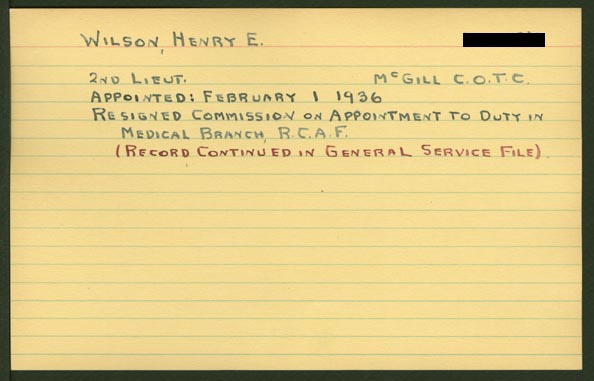 WILSON, HENRY E.
2ND LIEUT. McGILL C.O.T.C.
APPOINTED: FEBRUARY 1 1936
RESIGNED COMMISSION ON APPOINTMENT TO DUTY IN
MEDICAL BRANCH, R.C.A.F.
(RECORD CONTINUED IN GENERAL SERVICE FILE)